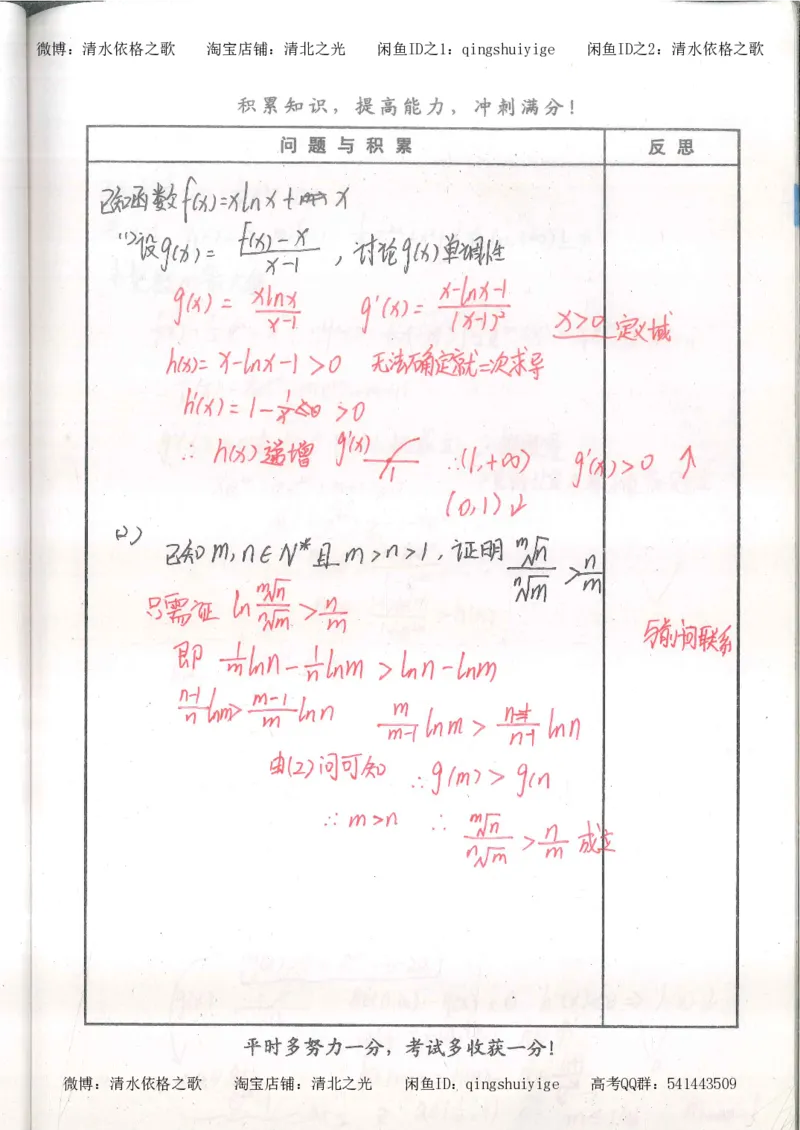 微博：清水依格之歌 淘宝店铺：清北之光 闲鱼ID之1：qingshuiyige 闲鱼ID之2：清水依格之歌
积累知识，提高能力，冲刺满分！
问题与积累 反思
已知函数f(x)=xlnx+x
(1)设g(x)=\frac{f(x)-x}{x-1}，讨论g(x)单调性
g(x)=\frac{xlnx}{x-1} g'(x)=\frac{x-lnx-1}{(x-1)²} x>0 定义域
h(x)=x-lnx-1>0 无法确定就二次求导
h'(x)=1-\frac{1}{x} >0
∴ h(x)递增 g'(x) 1 ∴(1,+∞) g'(x)>0 ↑
(0,1)↓
(2) 已知m,n∈N*且m>n>1，证明\frac{\sqrt[m]{n}}{\sqrt[n]{m}}>\frac{n}{m}
只需证 ln\frac{\sqrt[m]{n}}{\sqrt[n]{m}}>\frac{n}{m}
与前问联系
即 \frac{1}{m}lnn-\frac{1}{n}lnm>lnn-lnm
\frac{n-1}{n}lnm>\frac{m-1}{m}lnn \frac{m}{m-1}lnm>\frac{n}{n-1}lnn
由(2)问可知 ∴g(m)>g(n
∴m>n ∴\frac{\sqrt[m]{n}}{\sqrt[n]{m}}>\frac{n}{m} 成立
平时多努力一分，考试多收获一分！
微博：清水依格之歌 淘宝店铺：清北之光 闲鱼ID：qingshuiyige 高考QQ群：541443509